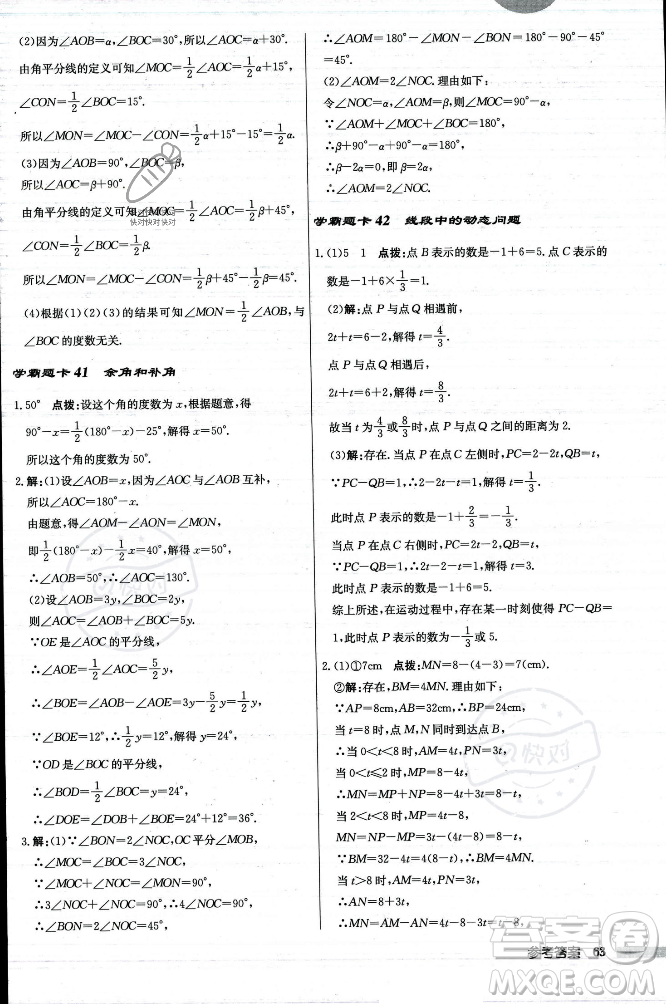 (2)因为∠AOB=α,∠BOC=30°,所以∠AOC=α+30°.
由角平分线的定义可知∠MOC=1/2∠AOC=1/2α+15°,
∠CON=1/2∠BOC=15°.
所以∠MON=∠MOC-∠CON=1/2α+15°-15°=1/2α.
(3)因为∠AOB=90°,∠BOC=β,
所以∠AOC=β+90°.
由角平分线的定义可知∠MOC=1/2∠AOC=1/2β+45°,
∠CON=1/2∠BOC=1/2β.
所以∠MON=∠MOC-∠CON=1/2β+45°-1/2β=45°.
(4)根据(1)(2)(3)的结果可知∠MON=1/2∠AOB,与
∠BOC的度数无关.
学霸题卡 41 余角和补角
1.50° 点拨:设这个角的度数为x,根据题意,得
90°-x=1/2(180°-x)-25°,解得x=50°.
所以这个角的度数为50°.
2.解:(1)设∠AOB=x,∵∠AOC与∠AOB互补,
∴∠AOC=180°-x.
由题意,得∠AOM-∠AON=∠MON,
即1/2(180°-x)-1/2x=40°,解得x=50°,
∴∠AOB=50°,∴∠AOC=130°.
(2)设∠AOB=3y,∠BOC=2y,
则∠AOC=∠AOB+∠BOC=5y.
∵OE是∠AOC的平分线,
∴∠AOE=1/2∠AOC=5/2y,
∴∠BOE=∠AOB-∠AOE=3y-5/2y=1/2y,
∵∠BOE=12°,∴1/2y=12°,解得y=24°,
∵OD是∠BOC的平分线,
∴∠BOD=1/2∠BOC=y=24°,
∴∠DOE=∠DOB+∠BOE=24°+12°=36°.
3.解:(1)∵∠BON=2∠NOC,OC平分∠MOB,
∴∠MOC=∠BOC=3∠NOC.
∵∠MOC+∠NOC=∠MON=90°,
∴3∠NOC+∠NOC=90°,∴4∠NOC=90°,
∴∠BON=2∠NOC=45°,
∴∠AOM=180°-∠MON-∠BON=180°-90°-45°
=45°.
(2)∠AOM=2∠NOC.理由如下:
令∠NOC=α,∠AOM=β,则∠MOC=90°-α.
∵∠AOM+∠MOC+∠BOC=180°,
∴β+90°-α+90°-α=180°,
∴β-2α=0,即β=2α,
∴∠AOM=2∠NOC.
学霸题卡 42 线段中的动态问题
1.(1)5 1 点拨:点B表示的数是-1+6=5.点C表示的
数是-1+6×1/3=1.
(2)解:点P与点Q相遇前,
2t+t=6-2,解得t=4/3;
点P与点Q相遇后,
2t+t=6+2,解得t=8/3.
故当t为4/3或8/3时,点P与点Q之间的距离为2.
(3)解:存在.当点P在点C左侧时,PC=2-2t,QB=t,
∵PC+QB=1,∴2-2t+t=1,解得t=1/3.
此时点P表示的数是-1+2/3=-1/3;
当点P在点C右侧时,PC=2t-2,QB=t,
∵PC+QB=1,∴2t-2+t=1,解得t=1.
此时点P表示的数是-1+6=5.
综上所述,在运动过程中,存在某一时刻使得PC+QB=
1,此时点P表示的数为-1/3或5.
2.(1)①7cm 点拨:MN=8-(4-3)=7(cm).
②解:存在,BM=4MN.理由如下:
∵AP=8cm,AB=32cm,∴BP=24cm,
当t=8时,点M,N同时到达点B,
当0<t<8时,AM=4t,PN=3t,
当0<t≤2时,MP=8-4t,
∴MN=MP+NP=8-4t+3t=8-t,
当2<t<8时,MP=4t-8,
∴MN=PN-MP=3t-(4t-8)=8-t.
∵BM=32-4t=4(8-t),
∴BM=4MN.
当t>8时,AM=4t,PN=3t,
∴AN=8+3t,
∴MN=AM-AN=4t-3t-8=t-8,
快对快对快对
快对
快对
参考答案 63
答案圈
MXQE.COM